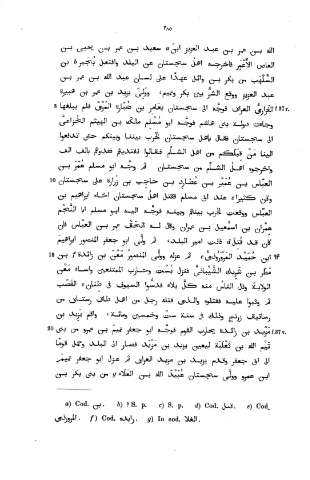 ٢٨٥
الله بن عمر بن عبد العزيز ابنه سعيد بن عمر بن يحيى بن
العاص الأعور فاخرجه اهل سجستان عن البلد وافتعل بن
المهلب من بكر بن وائل عهدا على لسان عبد الله بن عمر بن
عبد العزيز ووقع الشر بين بكر وتميم ۞ وولى يزيد بن عمر بن هبيرة
الفزارى العراق فوجه الى سجستان بعامر بن ضبارة المرى فلم يبلغها
وجاءت دولة بنى هاشم فوجه ابو مسلم ملك بن الهيثم الخزاعى
الى سجستان فقال لاهل سجستان نحرب بيننا وبينكم حتى تدفعوا
الينا من قبلكم من اهل الشأم فقالوا نفتديهم فقدوهم بالف الف
واخرجوه اهل الشأم من سجستان ۞ ثم وجه ابو مسلم عمر بن
العباس بن عمير بن عطارد بن حاجب بن زرارة على سجستان 10
بن اهل سجستان اخاه ابراهيم بن
العباس ووقعت بينهم وبينه فوجه اليه ابو مسلم ابا النجم
عمران بن اسمعيل بن عمران وقال له الحق عمر بن العباس فان
كان قد قتل فانت امير البلد ۞ ثم ولى ابو جعفر المنصور ابراهيم
بن حميد المروروذى ۞ ثم عزله وولى المنصور معن بن زائدة بن
مطر بن شريك الشيبانى فنزل بست وحارب الممتنعين واساء معن
الولاية وذل الناس منه كل بلاء فدسوا السيوف فى القصب
ثم وثبوا عليه فقتلوه والذى قتله رجل من اهل طاق رستاق من
رساتيق زرنج وذلك فى سنة ست وخمسين ومائة ۞ واقام يزيد بن
مزيد بن زائدة يحارب القوم فوجه ابو جعفر تميم بن عمرو من بنى 20
تيم الله بن ثعلبة ليعين يزيد بن مزيد فصار الى البلد وحمل قوما
الى ابى جعفر وقدم يزيد بن مزيد العراق ثم عزل ابو جعفر تميم
ابن عمرو وولى سجستان عبيد الله بن العلاء من بنى بكر بن
a) Cod. بن. b) ? S. p. c) S. p. d) Cod. e) Cod.
المرورذى. f) Cod. زايده. g) In cod. العلا.